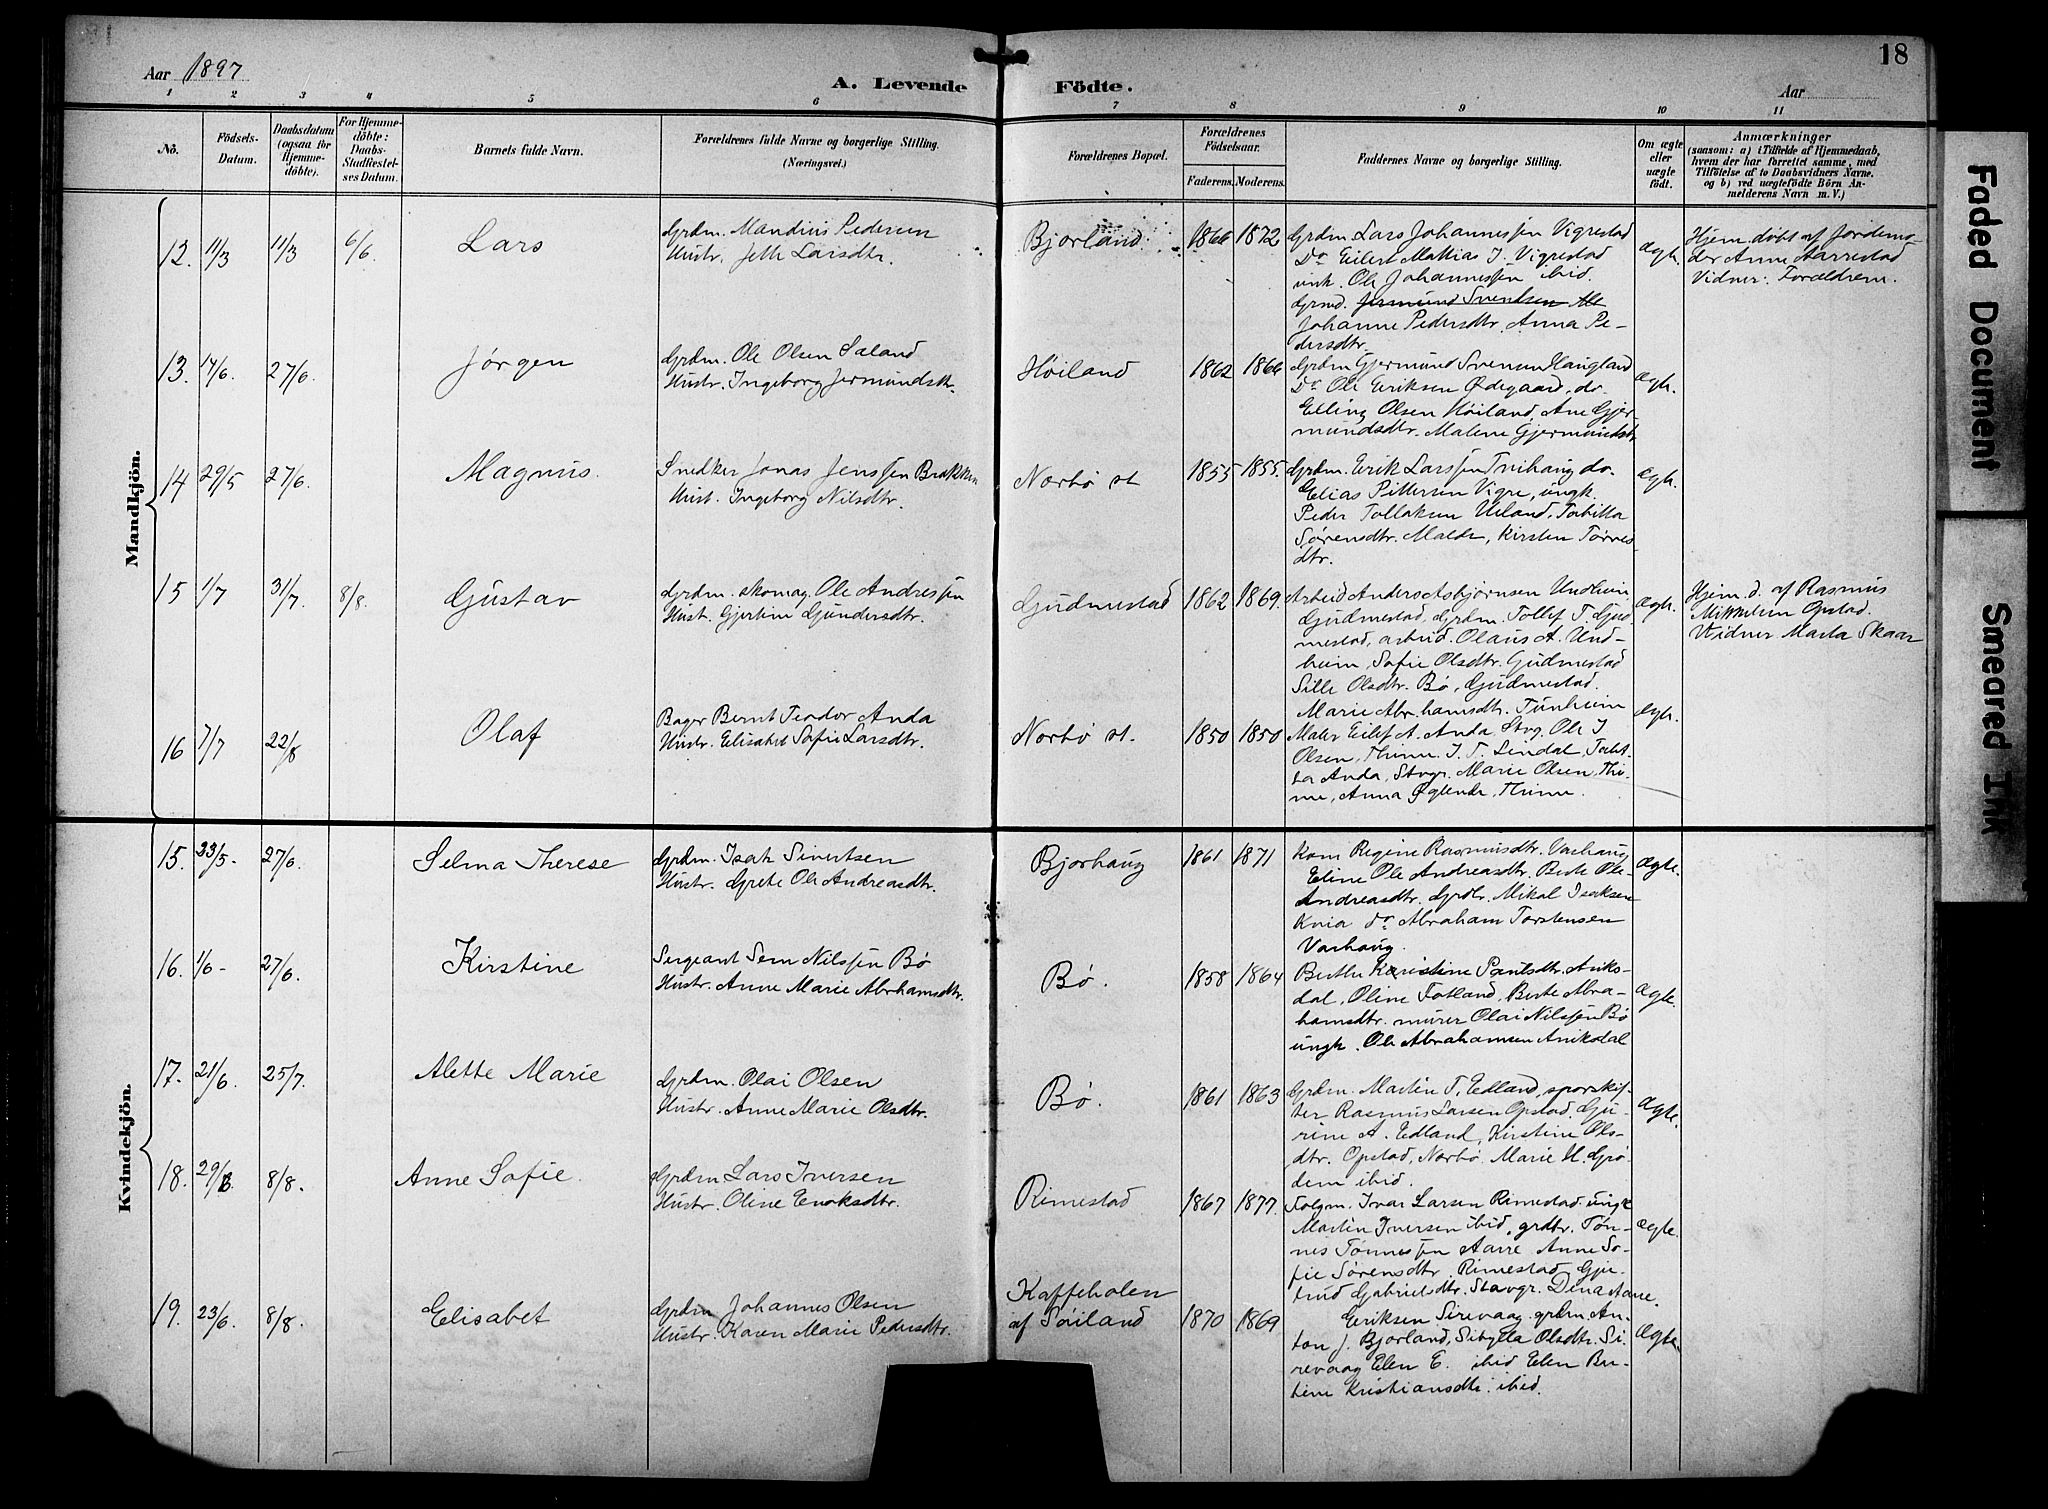 18
Aar 1897
A. Levende Födte.
Aar
1 2 3 4 5 6 7 8 9 10 11
No.
Födsels-
Datum.
Daabsdatum
(ogsaa for
Hjemme-
döbte).
For Hjemme-
döbte:
Daabs-
Stadfæstel-
ses Datum.
Barnets fulde Navn.
Forældrenes fulde Navne og borgerlige Stilling.
(Næringsvei.)
Forældrenes Bopæl.
Forældrenes
Födselsaar.
Faderens. Moderens.
Faddernes Navne og borgerlige Stilling.
Om ægte
eller
uægte
födt.
Anmærkninger
(saasom: a) i Tilfælde af Hjemmedaab,
hvem der har forrettet samme, med
Tilföielse af to Daabsvidners Navne.
og b) ved uægtefödte Börn An-
melderens Navn m. V.)
Mandkjön.
12. 11/3 11/3 6/6. Lars
Grdm. Mandius Pedersen
Hustr. Jette Larsdtr.
Bjorland. 1866 1872
Grdm. Lars Johannessen Vigrestad
Do Eilert Mattias J. Vigrestad
unk. Ole Johannessen ibid.
Grmd. Jermund Svendsen
Johanne Pedersdtr. Anna Pe-
dersdtr.
Ægte.
Hjem. döbt af Jordemo-
der Anne Aarrestad
Vidner: Forældrene.
13. 17/6. 27/6. Jörgen
Grdm. Ole Olsen Saland
Hustr. Ingeborg Jermundsdtr.
Höiland 1862 1866
Grdm Gjermund Svensen Haugland
Do Ole Eriksen Ødegaard, do.
Elling Olsen Höiland, Ane Gjer-
mundsdtr. Malene Gjermundsdtr
Ægte.
14 29/5 27/6. Magnus.
Snedker Jonas Jenssen Brakken
Hust. Ingeborg Nilsdtr.
Nærbø st 1855 1855.
Grdm. Erik Larssen Tvihaug do.
Elias Pittersen Vigre, ungk.
Peder Tollaksen Ueland, Tobitta
Sørensdtr. Malde, Kirsten Tørres-
dtr.
Ægte.
15 1/7 31/7. 8/8. Gustav
Grdm. skomag. Ole Andressen
Hust. Gjertine Gundersdtr.
Gudmestad 1862 1869.
Arbeid Anders Asbjørnsen Undheim
Gudmestad, Grdm. Tollef T. Gud-
mestad, arbeid. Olaus A. Und-
heim, Sofie Olsdtr. Gudmestad
Sille Olsdtr. Bø, Gudmestad.
Marie Abr.hamsdtr. Tunheim
Ægte.
Hjem. d. af Rasmus
Mikkelsen Opstad.
Vidner Marta Skaar
16 7/7 22/8 Olaf
Bager Bernt Teodor Anda
Hustr. Elisabet Sofie Larsdtr.
Nærbø st. 1850 1850
Maler Eilef A. Anda Stvg. Ole J
Olsen, Thime. J. T. Lindal, Tobit-
ta Anda, Stvgr. Marie Olsen, Thi-
me, Anna Øglende, Thime.
Ægte.
Kvindekjön.
15. 23/5- 27/6. Selma Therese
Grdm. Isak Sivertsen
Hustr. Grete Ole Andreasdtr.
Bjorhaug 1861 1871
Kom Regine Rasmusdtr. Varhaug
Eline Ole Andreasdtr. Berte Ole-
Andreasdtr. Grdbr. Mikal Isaksen
Kvia do Abraham Torstensen
Varhaug.
Ægte.
16. 1/6- 27/6. Kirstine
Sergeant Sem Nilssen Bø
Hustr. Anne Marie Abrhamsdtr.
Bø. 1858 1864
Berthe Karistine Paulsdtr. Aniks-
dal, Oline Fotland, Berte Abra-
hamsdtr. murer Olai Nilssen Bø
ungk. Ole Abrahamsen Aniksdal
Ægte.
17. 21/6. 25/7. Alette Marie
Grdm. Olai Olsen
Hustr. Anne Marie Olsdtr.
Bø. 1861 1863
Grdm Martin T. Edland, sporskif-
ter Rasmus Larsen Opstad, Gu-
rine A. Edland, Kirstine Ols-
dtr. Opstad, Nærbø. Marie H. Grø-
dem ibid.
Ægte.
18. 29/6. 8/8. Anne Sofie.
Grdm Lars Iversen
Hustr. Oline Enoksdtr.
Rimestad 1867 1877.
Folgm. Ivar Larsen Rimestad. ungk
Martin Iversen ibid, grdbr. Tøn-
nes Tønnessen Aarre Anne So-
fie Sørensdtr. Rimestad, Gju-
trud Gabrielsdtr. Stavgr. Dina Aane.
Ægte.
19. 23/6. 8/8. Elisabet
Grdm Johannes Olsen
Hustr. Karen Marie Pedersdtr.
Kaffeholen
af Søiland 1870 1869
Eriksen Sirevaag, grdm An-
ton J. Bjorland, Sibylla Olsdtr. Si-
revaag Elen E. ibid Elen Ber-
tine Kristiansdtr. ibid.
Ægte.
Faded Document
Smeared Ink